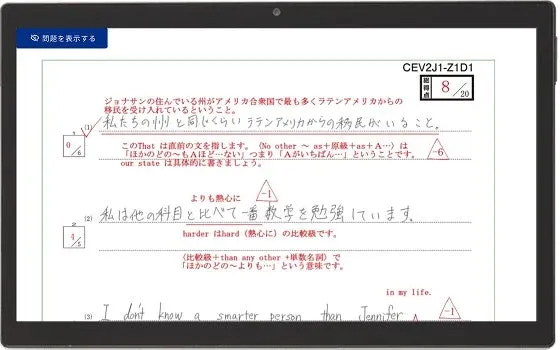 問題を表示する
CEV2J1-Z1D1
総得点 8/20
ジョナサンの住んでいる州がアメリカ合衆国で最も多くラテンアメリカからの
移民を受け入れているということ。
(1) 私たちの州と同じくらいラテンアメリカからの移民がいること。
0/6
-6
このThat は直前の文を指します。〈No other ～ as+原級+as+A…〉は
「ほかのどの～もAほど…ない」つまり「Aがいちばん…」ということです。
our state は具体的に書きましょう。
よりも熱心に
-1
(2) 私は他の科目と比べて一番数学を勉強しています。
4/5
harder はhard（熱心に）の比較級です。
〈比較級＋than any other +単数名詞〉で
「ほかのどの～よりも…」という意味です。
in my life.
(3) I don't know a smarter person than Jennifer
-1